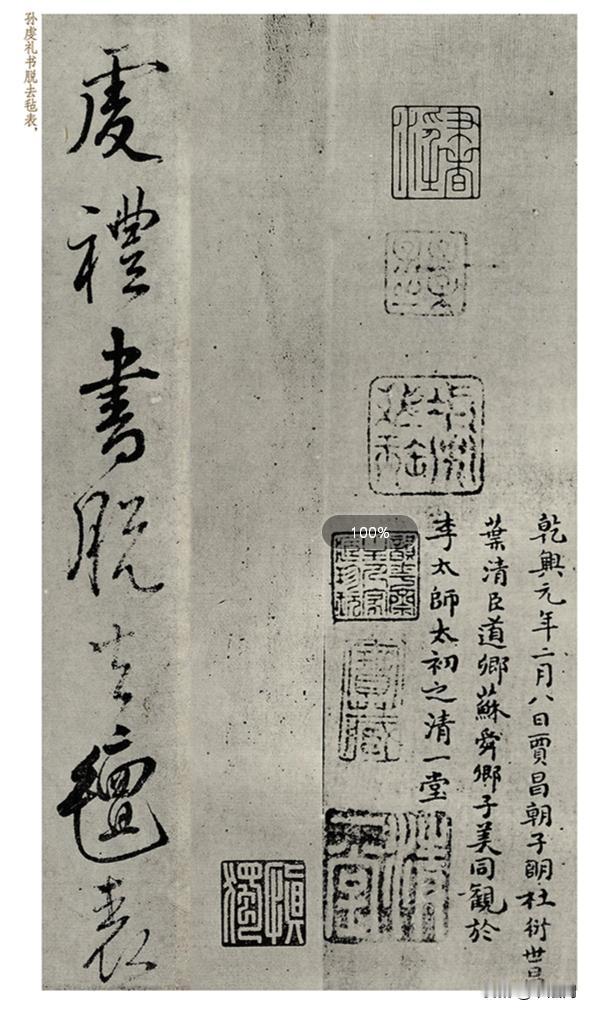 乾興元年二月八日賈昌朝子明杜衍世昌
葉清臣道卿蘇舜卿子美同觀於
李太師太初之清一堂
100%
寶藏
虔禮書脫去氊表
孙虔礼书脱去毡表,